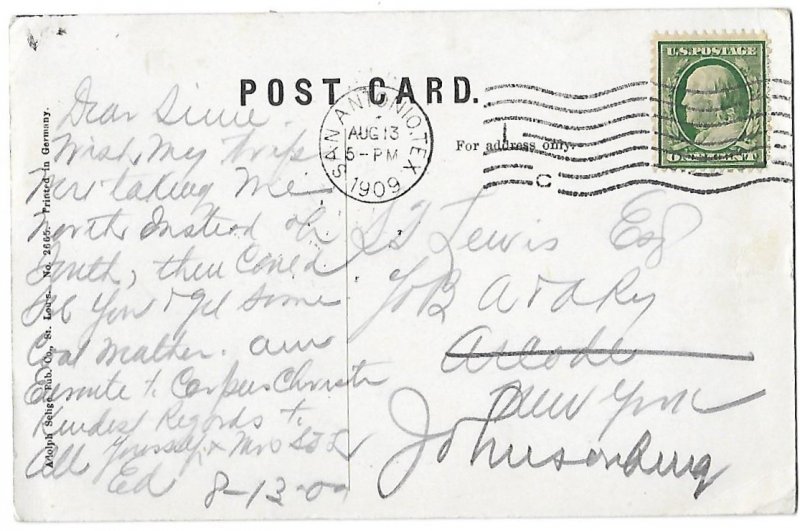 POST CARD.
Dear Sime.
Wish My trips
Were taking Me
North Instead of
South, then Could
See You & get Some
Cool Weather. am
Enroute to Corpus Christi
Kindest Regards to
All Yourself & Mrs
Ed 8-13-09
SAN ANTONIO, TEX.
AUG 13
5-PM
1909
For address only.
U.S. POSTAGE
ONE CENT
Lewis Esq
% B A & A Ry
Arcade
New York
Johnsonburg
Adolph Selige Pub. Co., St. Louis. No. 2665. Printed in Germany.